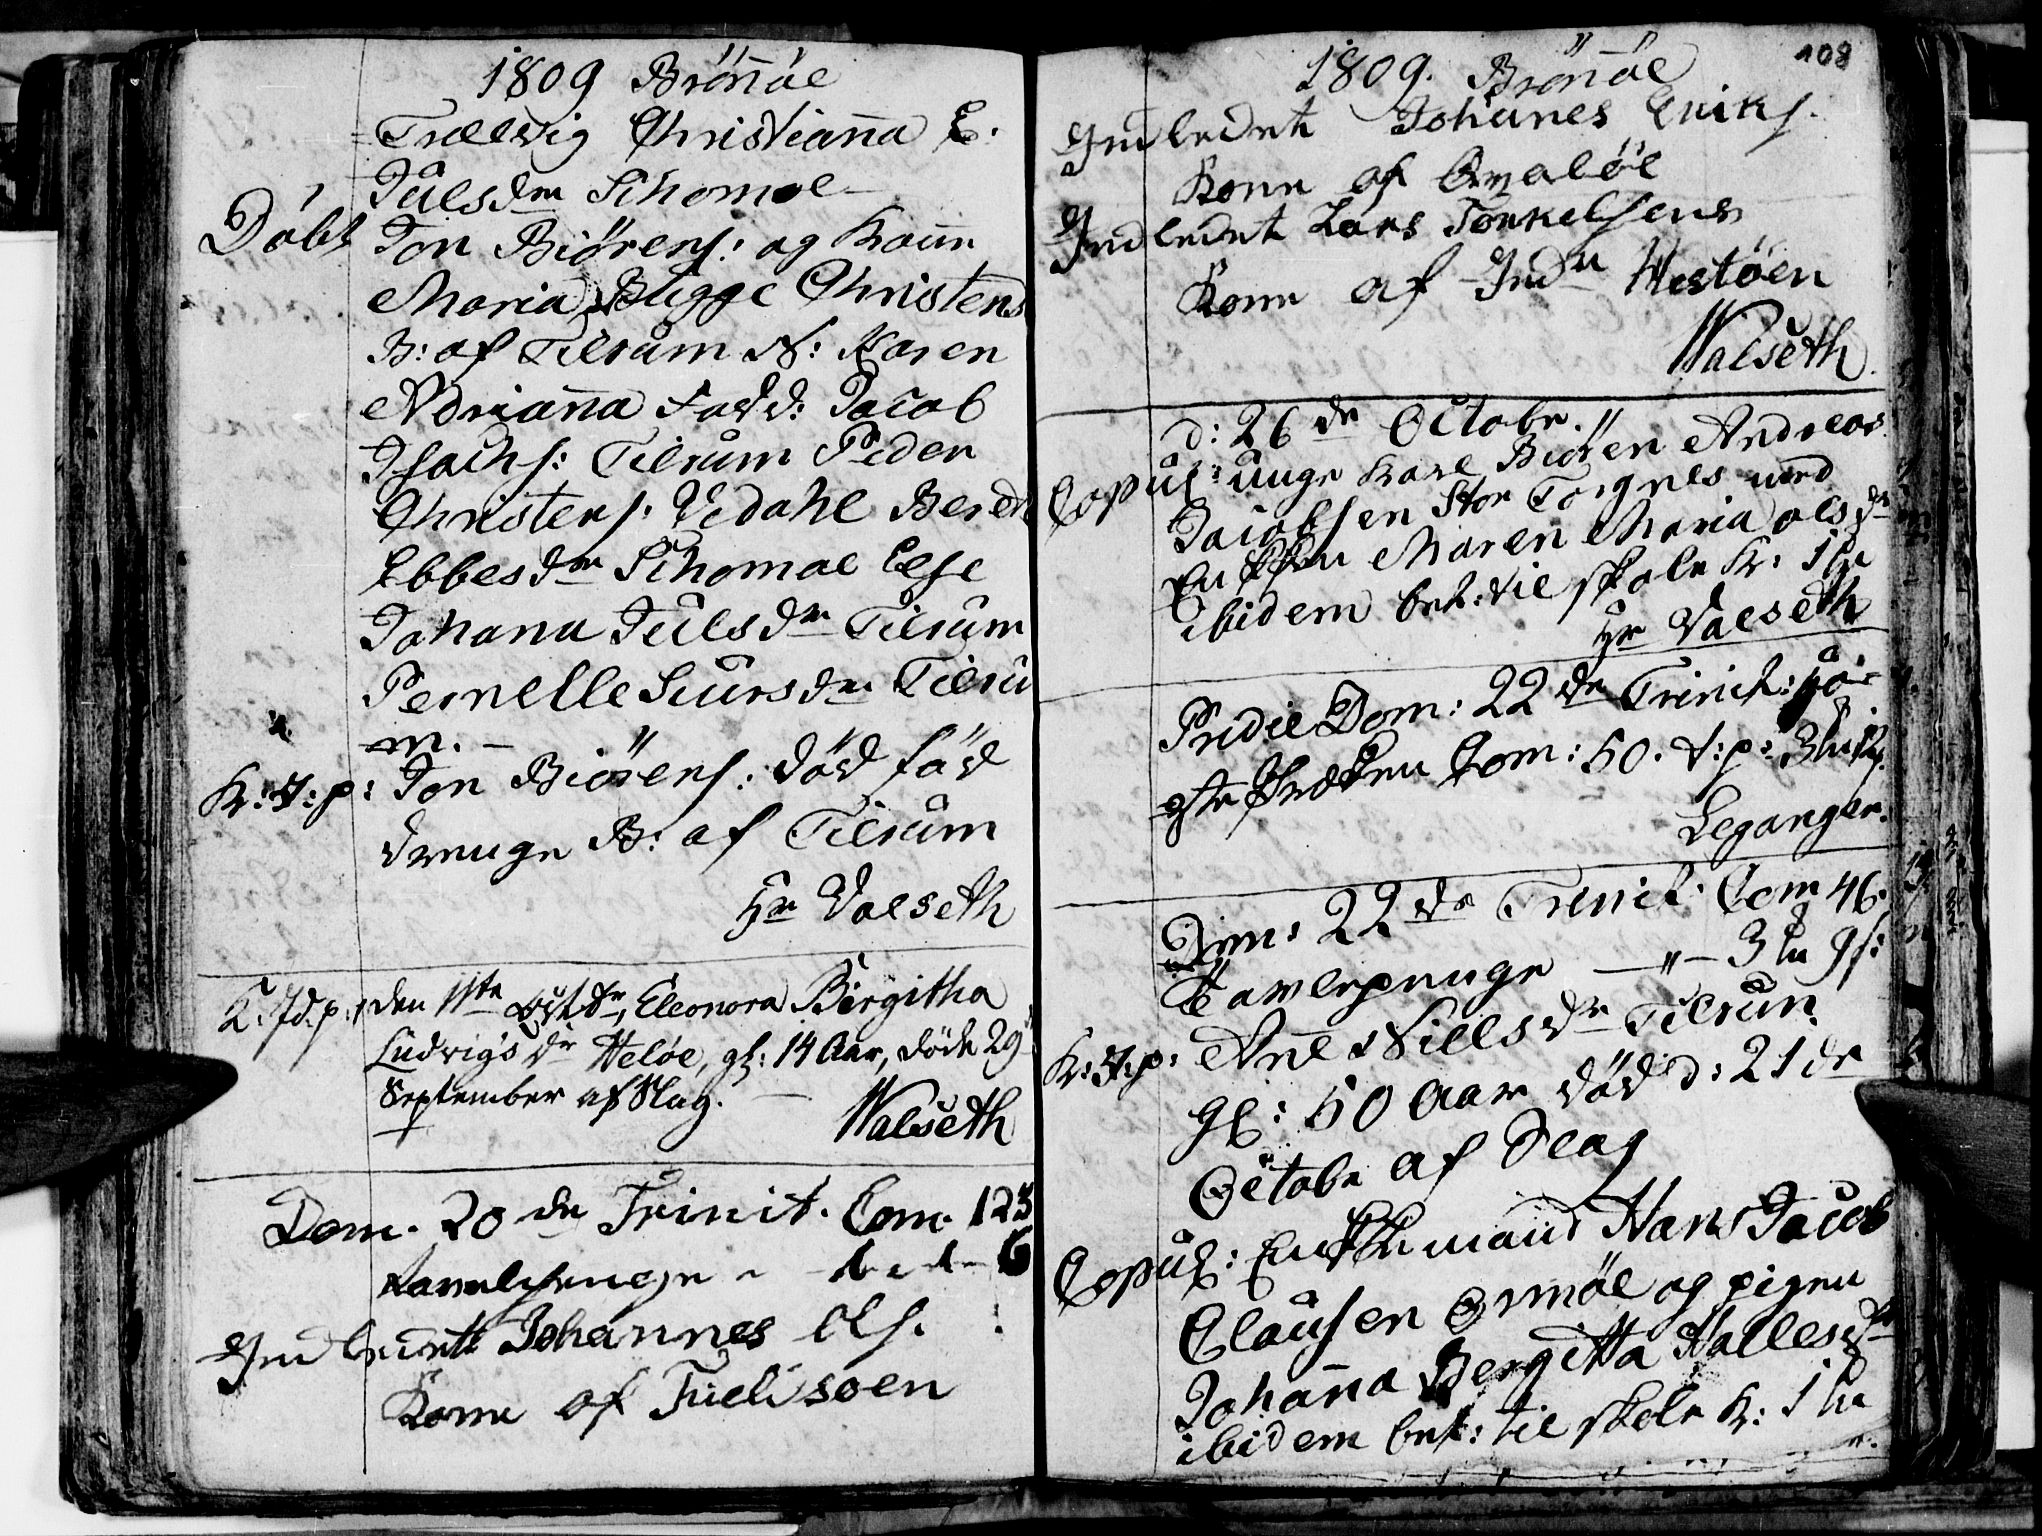 1809 Brönöe
Trælvig Christiana E.
Julsdr Schomoe
Döbt Jon Biörens: og Kone
Maria Bugge Christens
B: af Tilrum N: Karen
Adriana Fadd: Jacob
Isachs: Tilrum Peder
Christens: Vdahl Bereth
Ebbesdr Schomoe Else
Johana Julsdr Tilrum
Pernelle Siursdr Tilru
m.
K: J: p: Jon Biörens: död föd
drenge B: af Tilrum
Hr Valseth
K: Jd: p: den 11te Octbr, Eleonora Birgitha
Ludvigs dr Heløe, gl: 14 Aar, døde 29
September af Slag.
Walseth
Dom. 20de Trinit. Com. 123
Tavlepenge
Indledet Johannes Ols.
Kone af Tielisøen
108
1809. Brönöe
Indledet Johanes Eriks.
Kone af Qvalöe
Indledet Lars Torkelsens
Kone af Indr Westöen
Walseth
d: 26de Octobr.
Copul: unge Karl Biören Andreas
Jacobsen Stor Torgnes med
Enken Maren Maria olsdr
ibidem bet: til skole K:
Hr Valseth
Pridie Dom: 22de Trinit:
Com: 50. t: p:
Leganger.
Dom: 22de Trinit. Com 46.
Tavlepenge
K: J: p: Ane Nielsdr Tilrum.
gl: 50 Aar död d: 21de
Octobr af Slag
Copul: Enkemand Hans Jacob
Clausen Ormöe og pigen
Johana Bergitta Hallesdr
ibidem bet: til skole K: